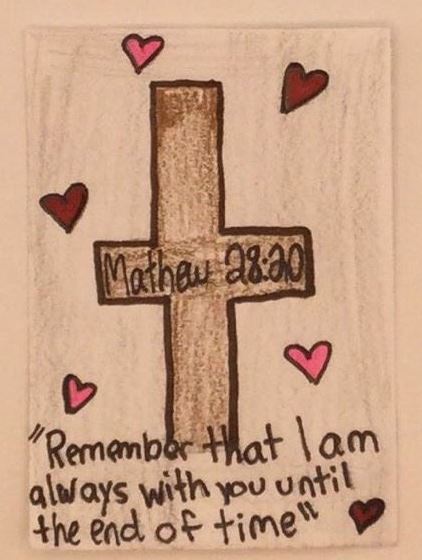 Mathew 28:20
"Remember that I am
always with you until
the end of time"